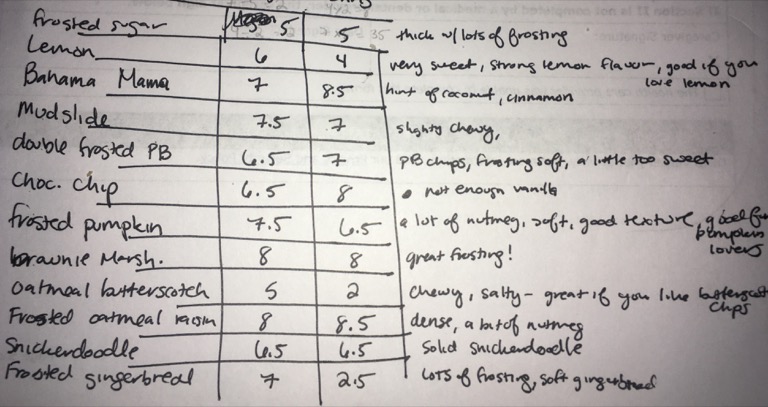 frosted sugar 5 5 thick w/ lots of frosting
Lemon 6 4 very sweet, strong lemon flavor, good if you love lemon
Bahama Mama 7 8.5 hint of coconut, cinnamon
Mudslide 7.5 7 slighty chewy,
double frosted PB 6.5 7 PB chips, frosting soft, a little too sweet
Choc. chip 6.5 8 • not enough vanilla
frosted pumpkin 7.5 6.5 a lot of nutmeg, soft, good texture, good for pumpkin lovers
brownie Marsh. 8 8 great frosting!
Oatmeal butterscotch 5 2 chewy, salty - great if you like butterscotch chips
Frosted oatmeal raisin 8 8.5 dense, a bit of nutmeg
Snickerdoodle 6.5 6.5 Solid snickerdoodle
Frosted gingerbread 7 2.5 LOTS of frosting, soft gingerbread